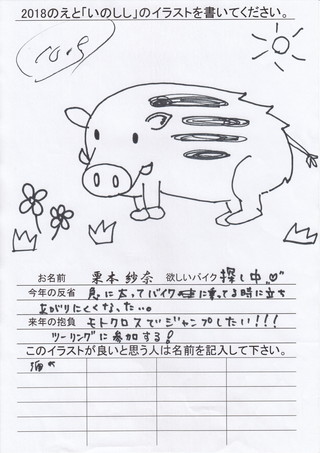 2018のえと「いのしし」のイラストを書いてください。
お名前 栗本 紗奈 欲しいバイク 探し中♡
今年の反省 急に太ってバイクに乗ってる時に立ち
あがりにくくなった…。
来年の抱負 モトクロスでジャンプしたい!!!
ツーリングに参加する!
このイラストが良いと思う人は名前を記入して下さい。